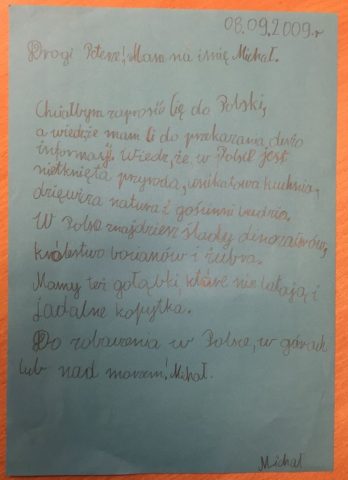 08.09.2009.r
Drogi Peterze! Mam na imię Michał.
Chciałbym zaprosić Cię do Polski,
a wiedzże mam Ci do przekazania dużo
informacji. Wiedz, że w Polsce jest
nietknięta przyroda, unikatowa kuchnia,
dziewicza natura i gościnni ludzie.
W Polsce znajdziesz ślady dinozaurów,
królestwo bocianów i żubra.
Mamy też gołąbki które nie latają i
jadalne kopytka.
Do zobaczenia w Polsce, w górach
lub nad morzem! Michał.
Michał